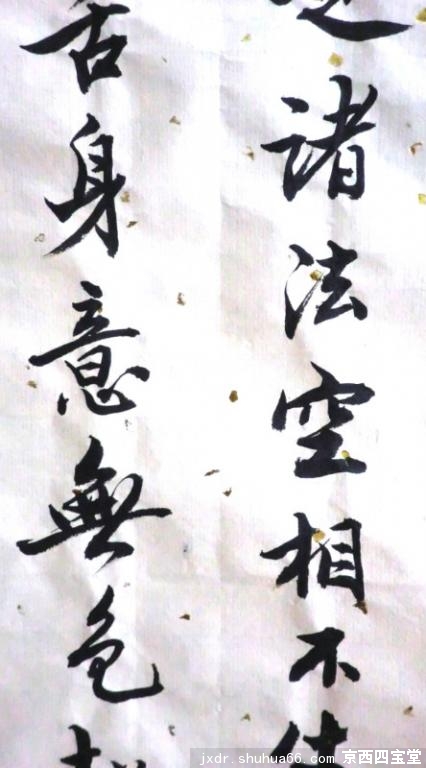 諸法空相不
舌身意無色
jxdr.shuhua66.com 京西四宝堂